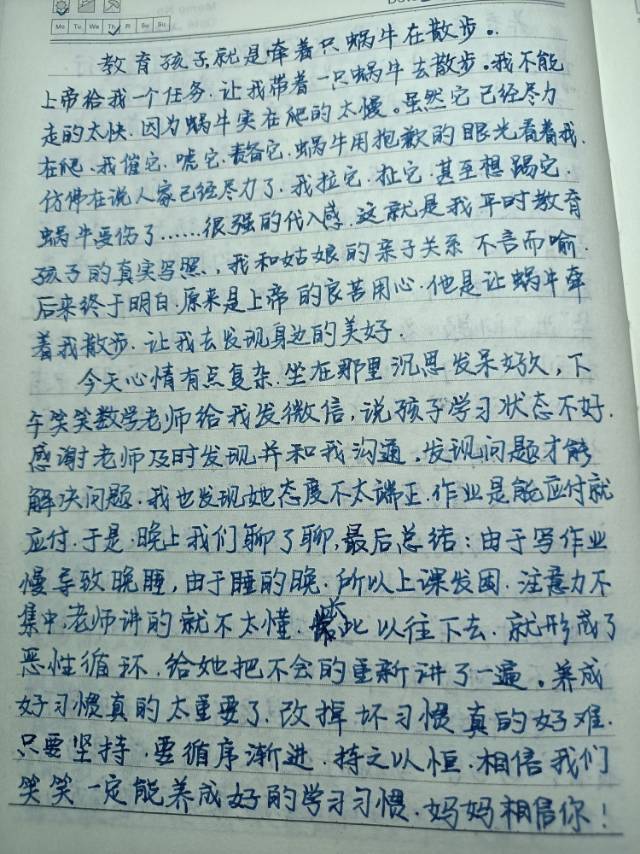 Mo Tu We Th Fr Sa Su
教育孩子就是牵着只蜗牛在散步。
上帝给我一个任务.让我带着一只蜗牛去散步。我不能
走的太快.因为蜗牛实在爬的太慢。虽然它已经尽力
在爬.我催它.唬它.责备它.蜗牛用抱歉的眼光看着我.
仿佛在说人家已经尽力了.我拉它.扯它.甚至想踢它.
蜗牛受伤了……很强的代入感.这就是我平时教育
孩子的真实写照.我和姑娘的亲子关系不言而喻.
后来终于明白.原来是上帝的良苦用心.他是让蜗牛牵
着我散步.让我去发现身边的美好.
今天心情有点复杂.坐在那里沉思发呆好久,下
午笑笑数学老师给我发微信,说孩子学习状态不好.
感谢老师及时发现并和我沟通.发现问题才能
解决问题.我也发现她态度不太端正.作业是能应付就
应付.于是.晚上我们聊了聊,最后总结:由于写作业
慢导致晚睡,由于睡的晚.所以上课发困.注意力不
集中,老师讲的就不太懂.长此以往下去.就形成了
恶性循环.给她把不会的重新讲了一遍。养成
好习惯真的太重要了.改掉坏习惯真的好难.
只要坚持.要循序渐进.持之以恒.相信我们
笑笑一定能养成好的学习习惯.妈妈相信你!